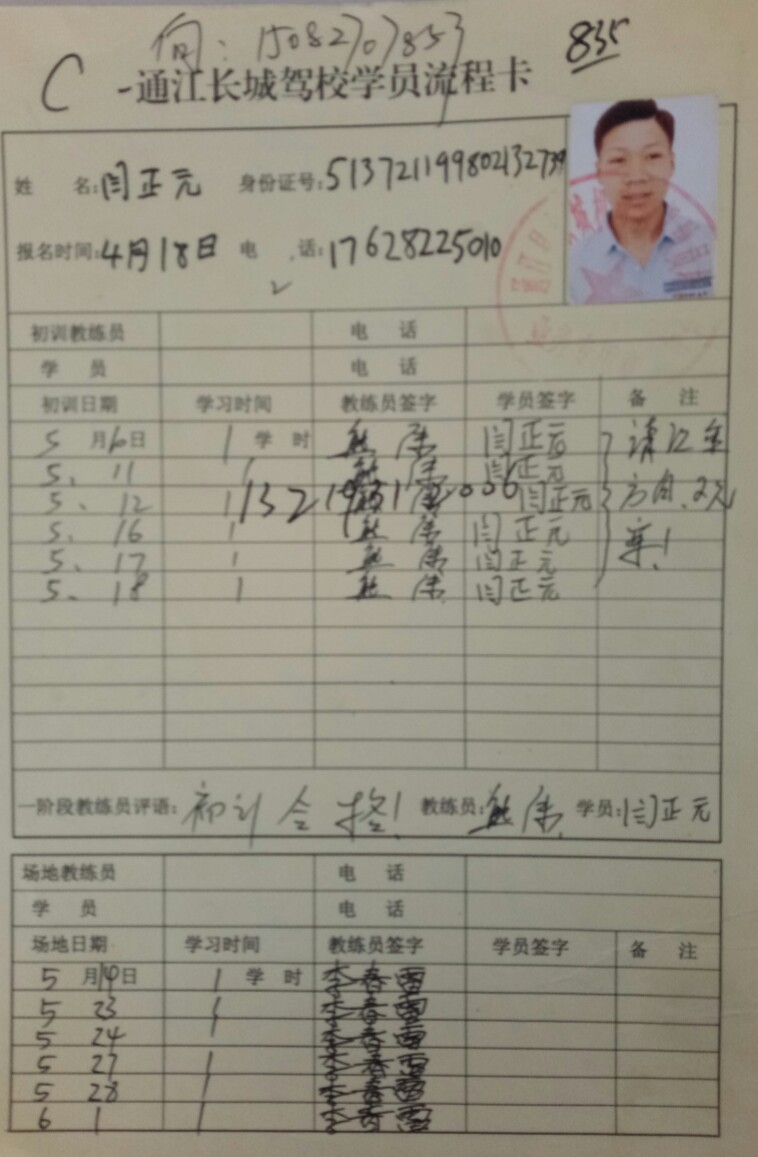 向：15082707853
835
C
-通江长城驾校学员流程卡
姓 名:闫正元 身份证号:513721199802132739
报名时间:4月18日 电 话:17628225010
初训教练员 电 话
学 员 电 话
初训日期 学习时间 教练员签字 学员签字 备 注
5月6日 1学 时 闫正元
5、11 1 闫正元
5、12 1 闫正元
5、16 1 闫正元
5、17 1 闫正元
5、18 1 闫正元
一阶段教练员评语:初训合格! 教练员: 学员:闫正元
场地教练员 电 话
学 员 电 话
场地日期 学习时间 教练员签字 学员签字 备 注
5月19日 1学 时 李春雷
5 23 1 李春雷
5 24 李春雷
5 27 1 李春雷
5 28 1 李春雷
6 1 1 李春雷